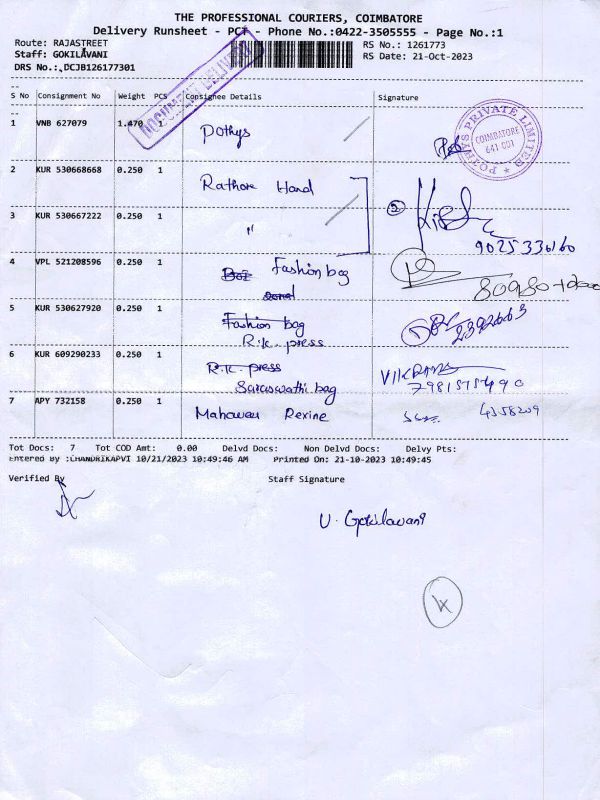 THE PROFESSIONAL COURIERS, COIMBATORE
Delivery Runsheet - PCT - Phone No.:0422-3505555 - Page No.:1
Route: RAJASTREET RS No.: 1261773
Staff: GOKILAVANI RS Date: 21-Oct-2023
DRS No.: DCJB126177301
DOCUMENT DELIVERY
S No Consignment No Weight PCS Consignee Details Signature
1 VNB 627079 1.470 1 Pothys
POTHYS PRIVATE LIMITED
COIMBATORE
641 001
2 KUR 530668668 0.250 1 Rathore Hand
3 KUR 530667222 0.250 1 "
9025330160
4 VPL 521208596 0.250 1 Fashion bag
5 KUR 530627920 0.250 1 Fashion bag
R.K. press
2392663
6 KUR 609290233 0.250 1 R.K. press
Saraswathi bag
7 APY 732158 0.250 1 Rexine
Tot Docs: 7 Tot COD Amt: 0.00 Delvd Docs: Non Delvd Docs: Delvy Pts:
Entered By :CHANDRIKAPVI 10/21/2023 10:49:46 AM Printed On: 21-10-2023 10:49:45
Verified By Staff Signature
U. Gokilavani